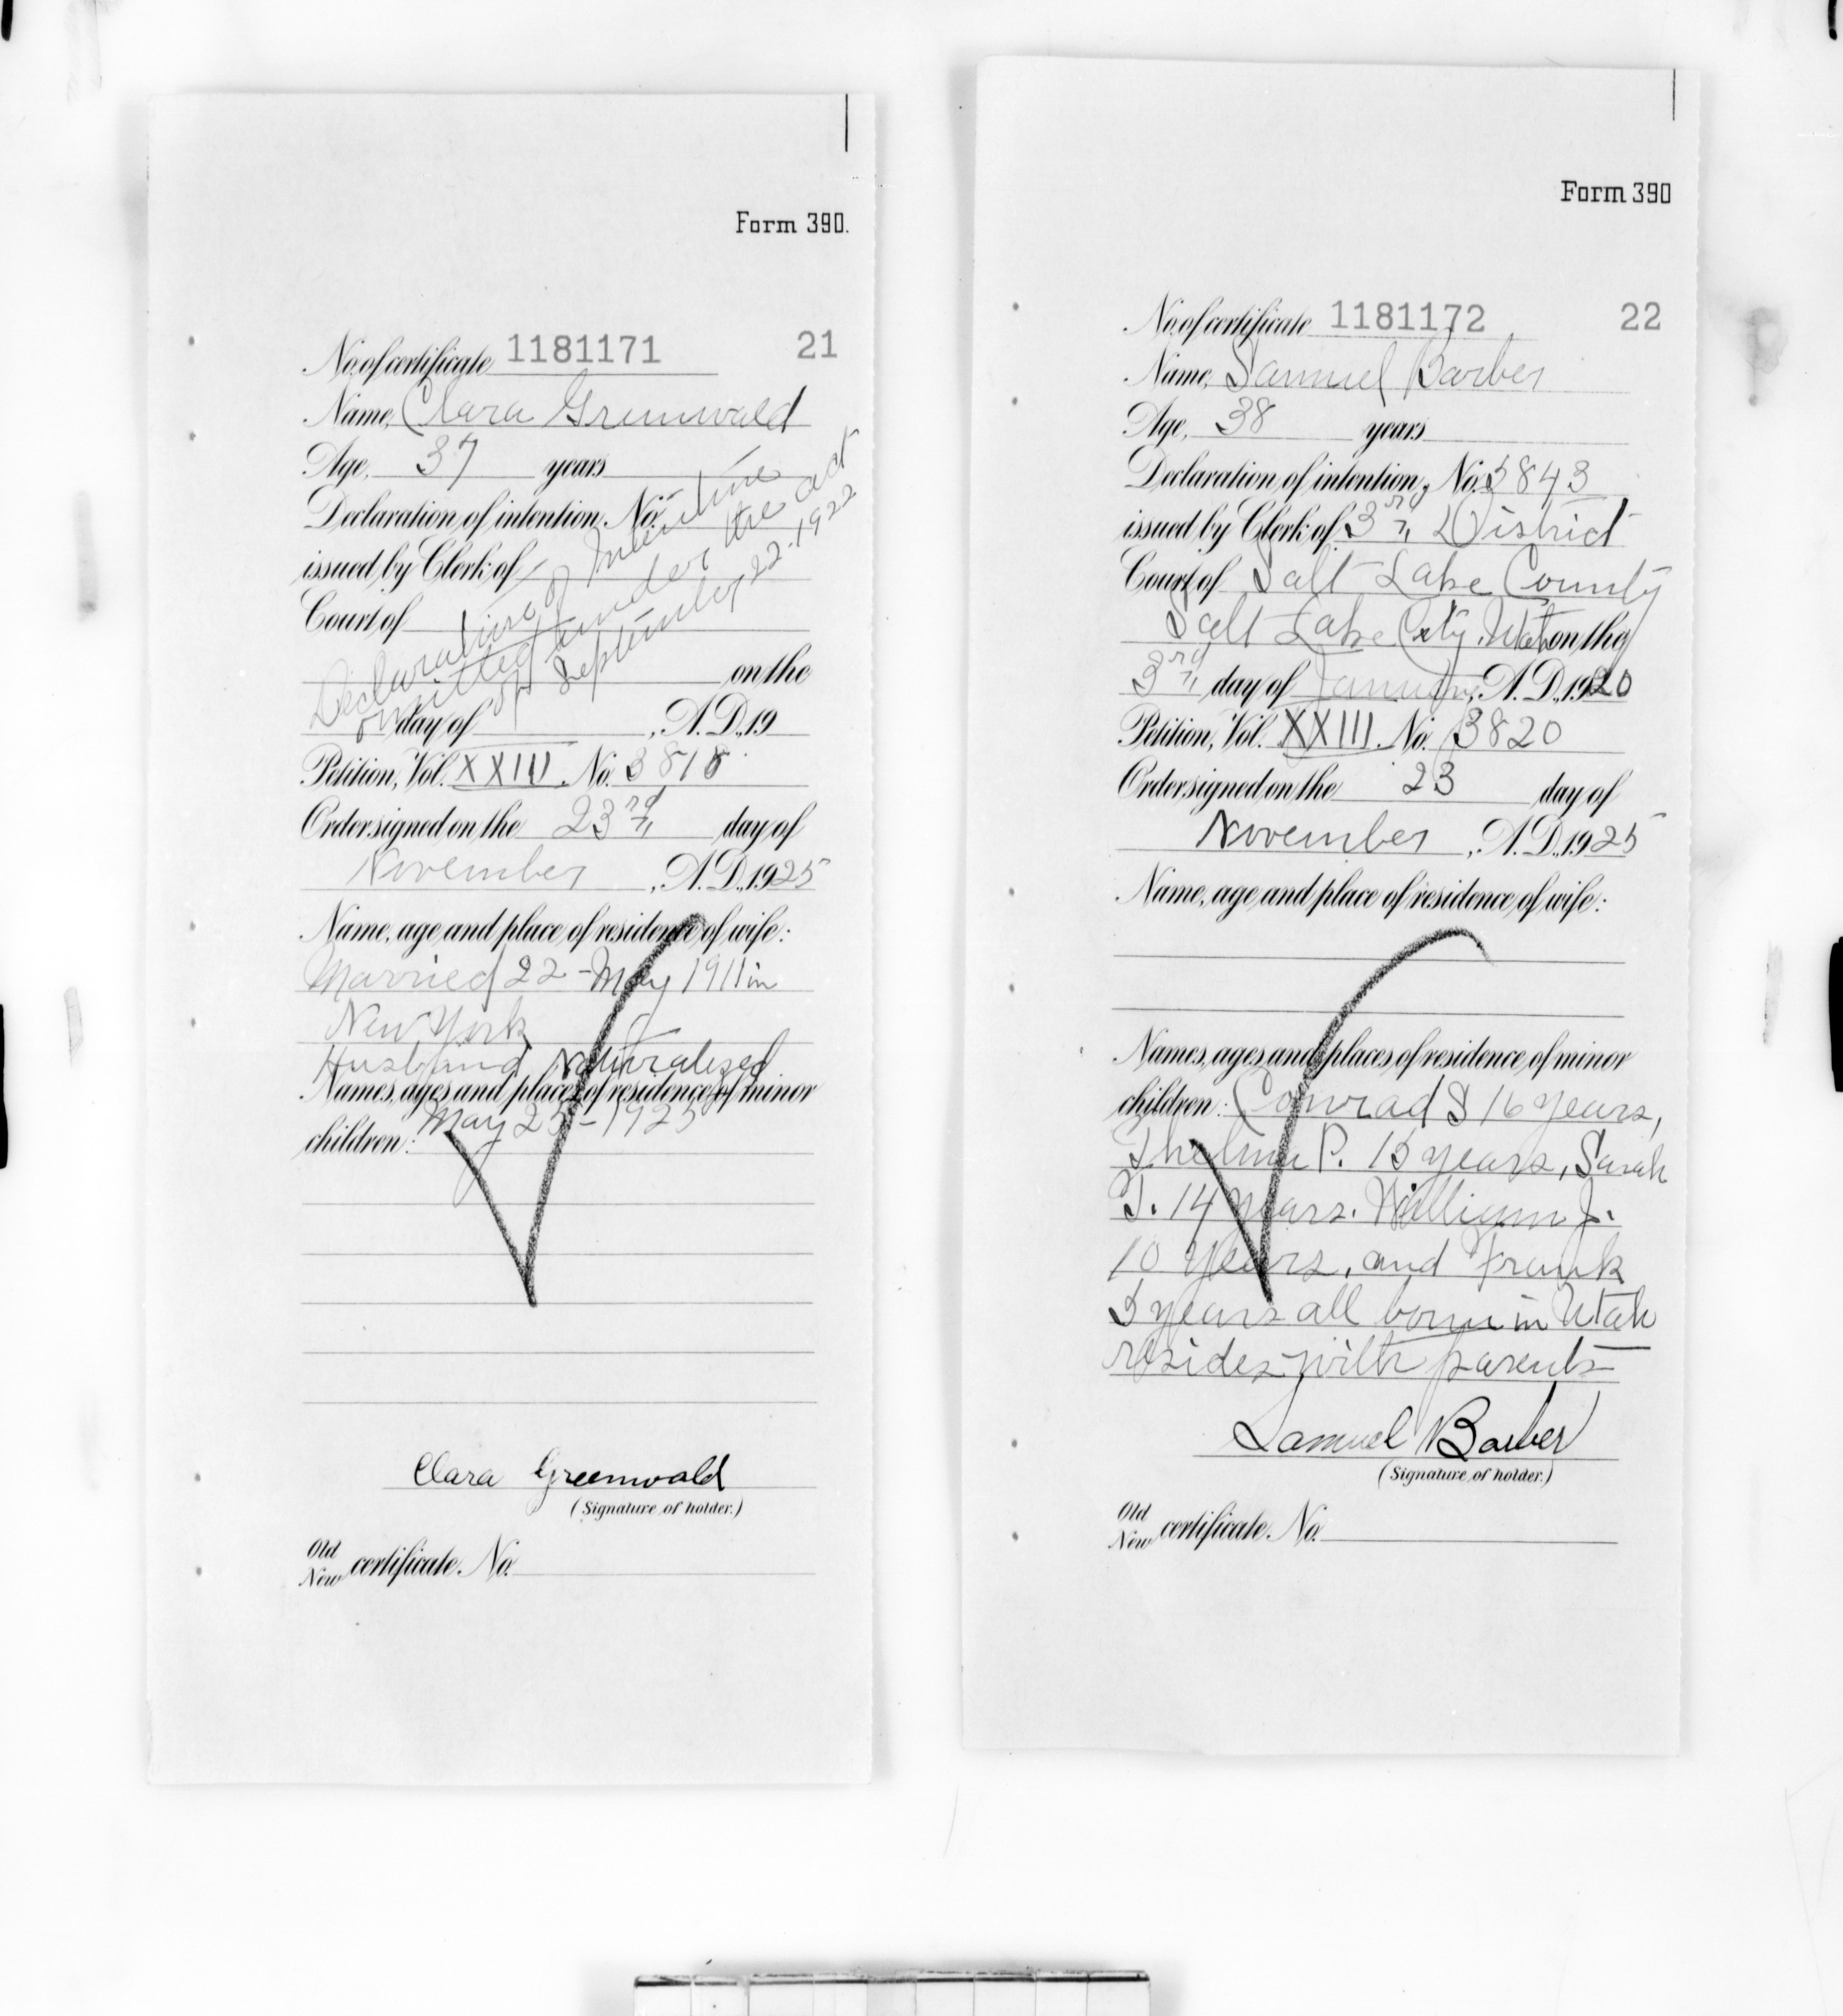 Form 390.
No. of certificate 1181171 21
Name, Clara Grunwald
Age, 37 years
Declaration of intention, No.
issued by Clerk of
Court of
Declaration of Intentine
omitted under the act
of September 22-1922
on the
day of , A. D., 19
Petition, Vol. XXIII, No. 3818
Order signed on the 23rd day of
November, A. D., 1925
Name, age and place of residence of wife:
Married 22-May 1911 in
New York
Husband Naturalized
Names, ages and places of residence of minor
May 25-1925
children:
Clara Greenwald
(Signature of holder.)
Old
New certificate No.
Form 390
No. of certificate 1181172 22
Name, Samuel Barber
Age, 38 years
Declaration of intention, No. 5843
issued by Clerk of 3rd District
Court of Salt Lake County
Salt Lake City, Utah on the
3rd day of January, A. D., 1920
Petition, Vol. XXIII. No. 3820
Order signed on the 23 day of
November, A. D., 1925
Name, age and place of residence of wife:
Names, ages and places of residence of minor
children: Conrad S 16 years,
Thelma P. 15 years, Sarah
J. 14 years. William J.
10 years, and Frank
5 years all born in Utah
resides with parents
Samuel Barber
(Signature of holder.)
Old
New certificate No.